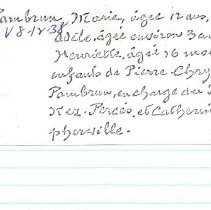 Pambrun, Marie, âgée 12 ans,
V 8-12-38 adèle, âgée environ 3 an
Henriette, âgée 16 mo
enfants de Pierre Chry
Pambrun, en charge du
Nez Percés, et Catheri
pherville.